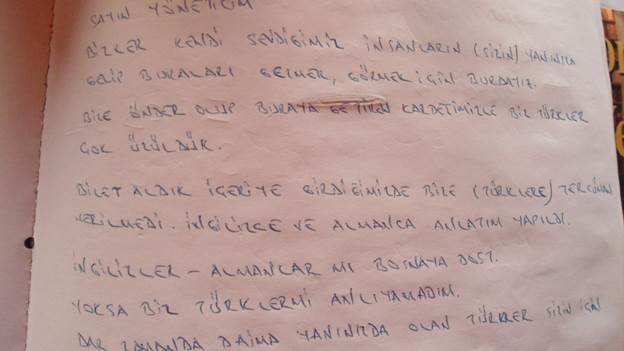 SAYIN YÖNETİCİM
BİZLER KENDİ SEVDİĞİMİZ İNSANLARIN (SİZİN) YANINIZA
GELİP BURALARI GEZMEK, GÖRMEK İÇİN BURDAYIZ.
BİZE ÖNDER OLUP BURAYA GETİREN KARDEŞİMİZLE BİZ TÜRKLER
ÇOK ÜZÜLDÜK.
BİLET ALDIK İÇERİYE GİRDİĞİMİZDE BİZE (TÜRKLERE) TERCÜMAN
VERİLMEDİ. İNGİLİZCE VE ALMANCA ANLATIM YAPILDI.
İNGİLİZLER - ALMANLAR MI BOSNAYA DOST.
YOKSA BİZ TÜRKLERMİ ANLIYAMADIM.
DAR ZAMANDA DAİMA YANINIZDA OLAN TÜRKLER SİZİN İÇİN